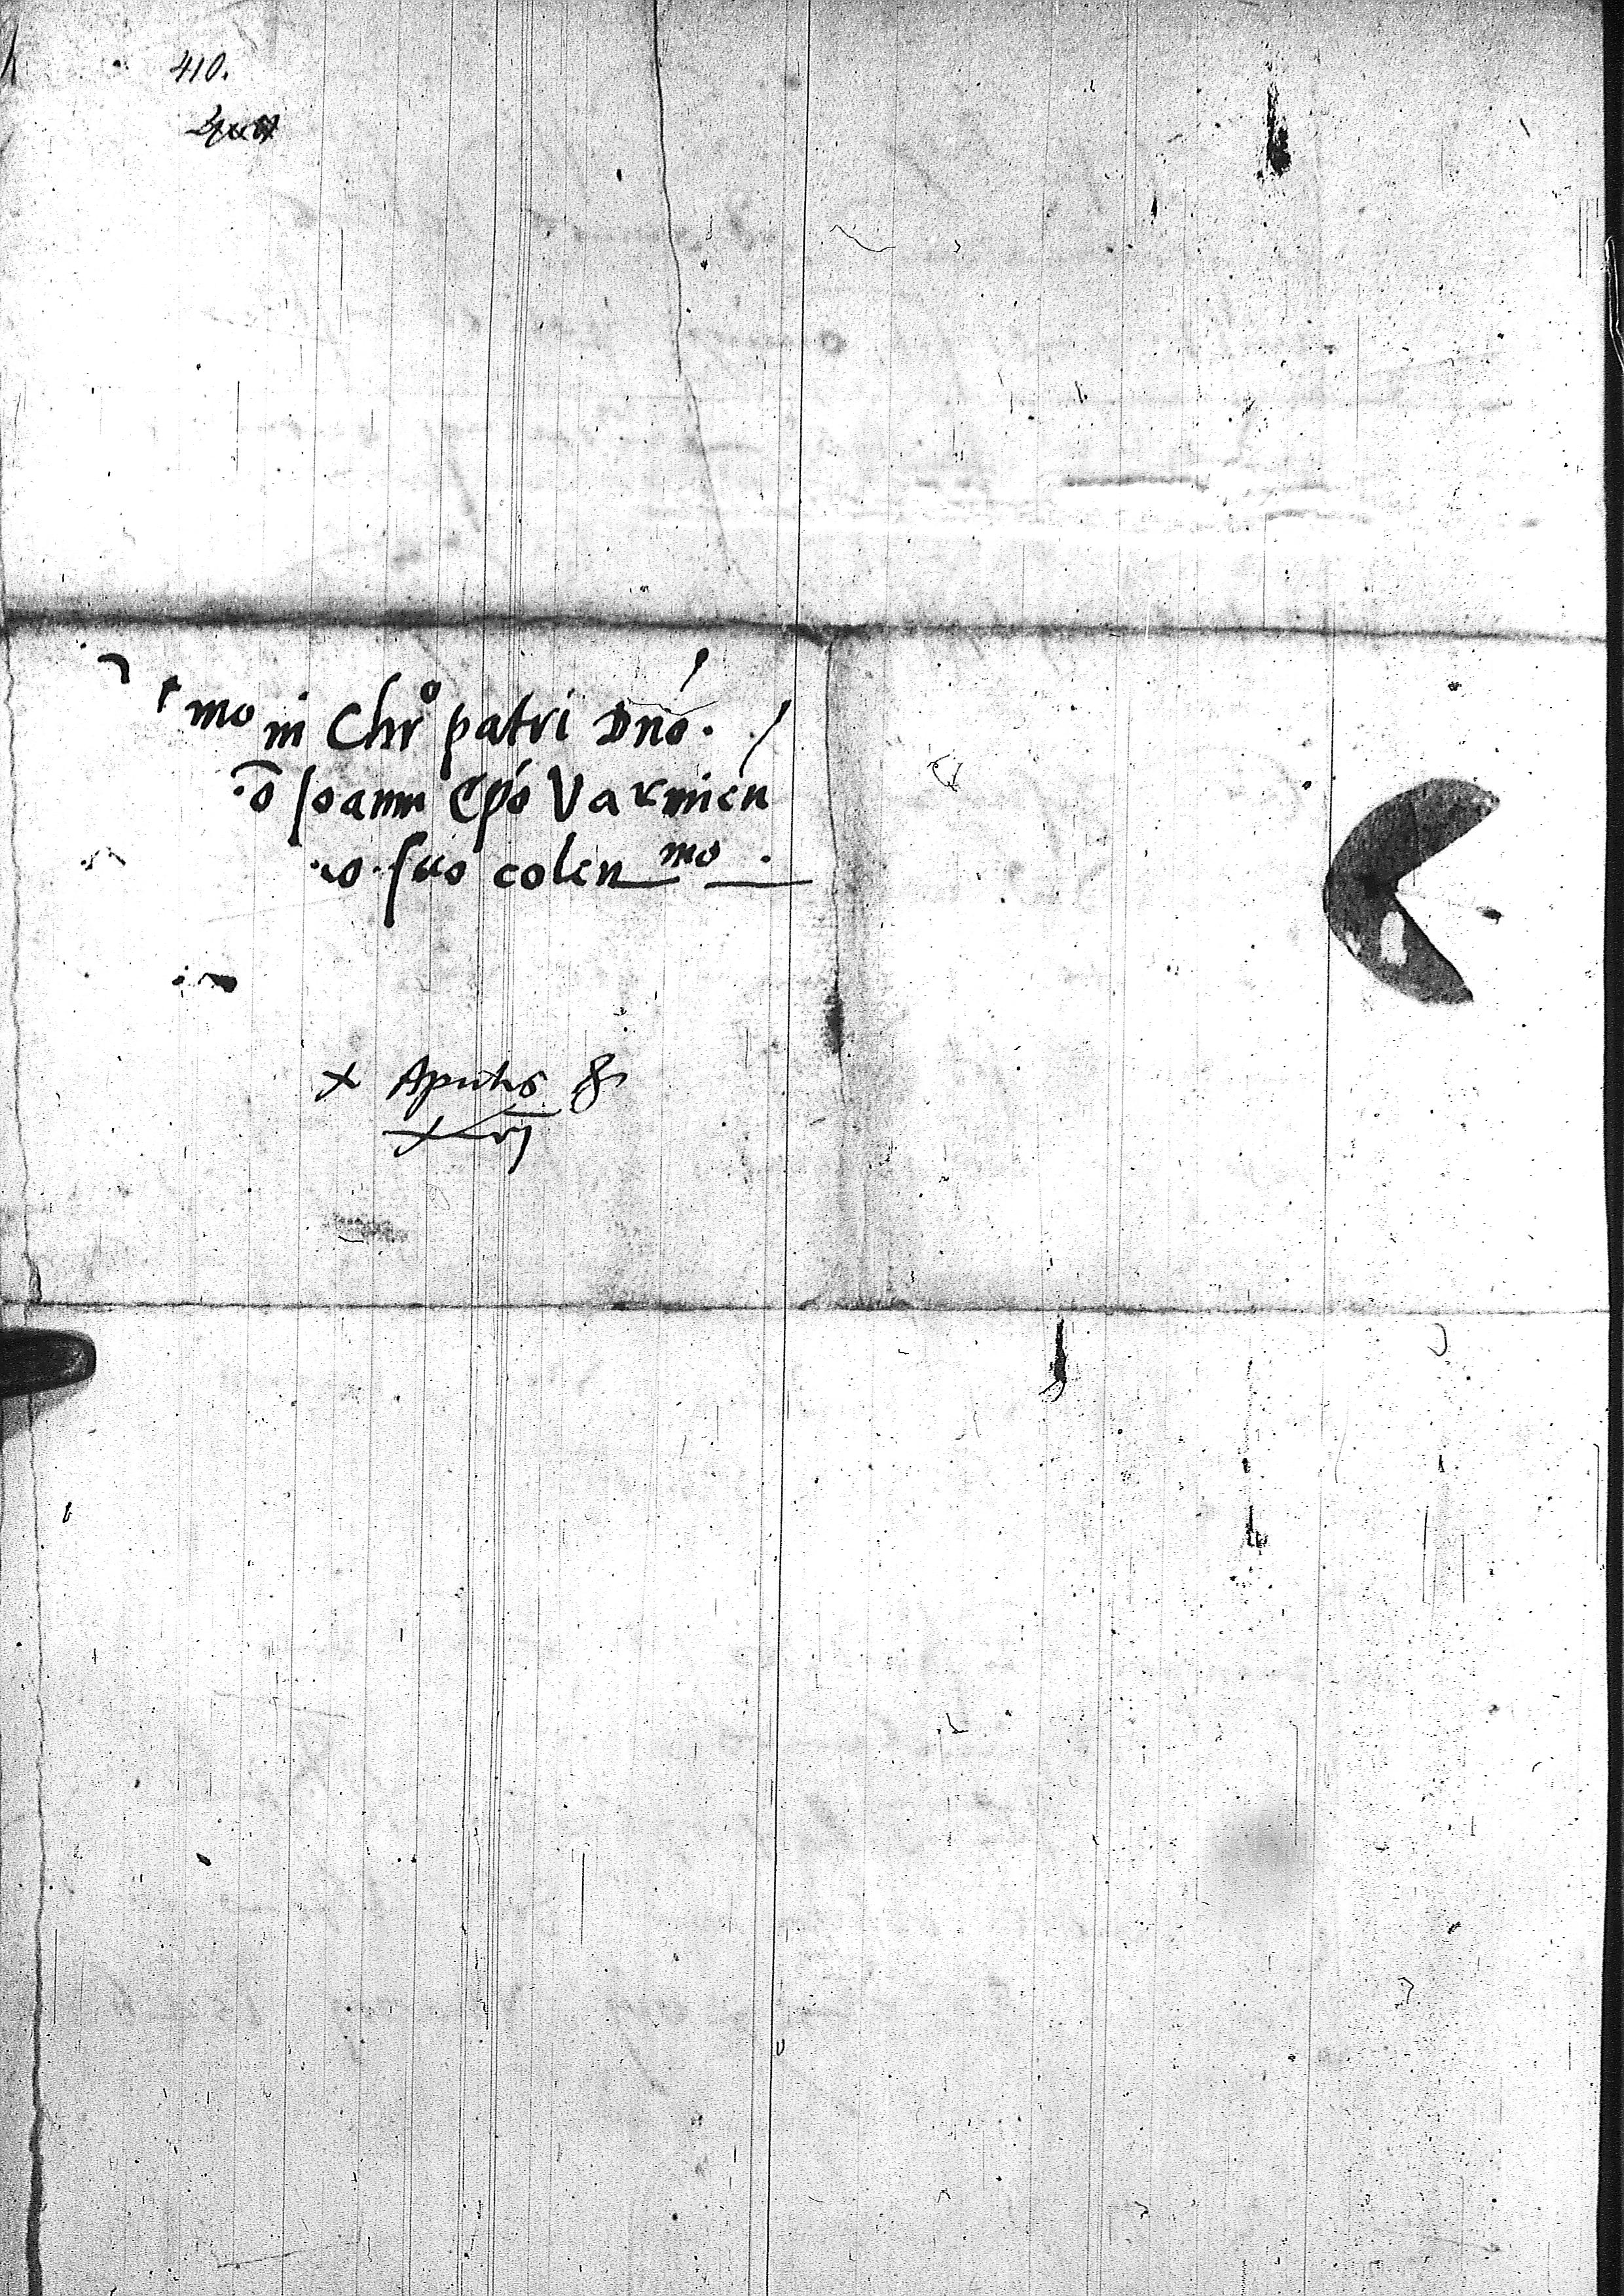 410.
mo in Chro patri Dno.
o Ioanni Epo Varmien
o suo colen mo.
x Aprilis